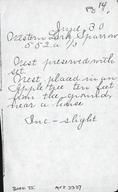 14,
June 30
Western Lark Sparrow
552.a 1/3
Nest preserved with
set
Nest placed in an
apple tree ten feet
from the ground,
near a house
Inc-slight